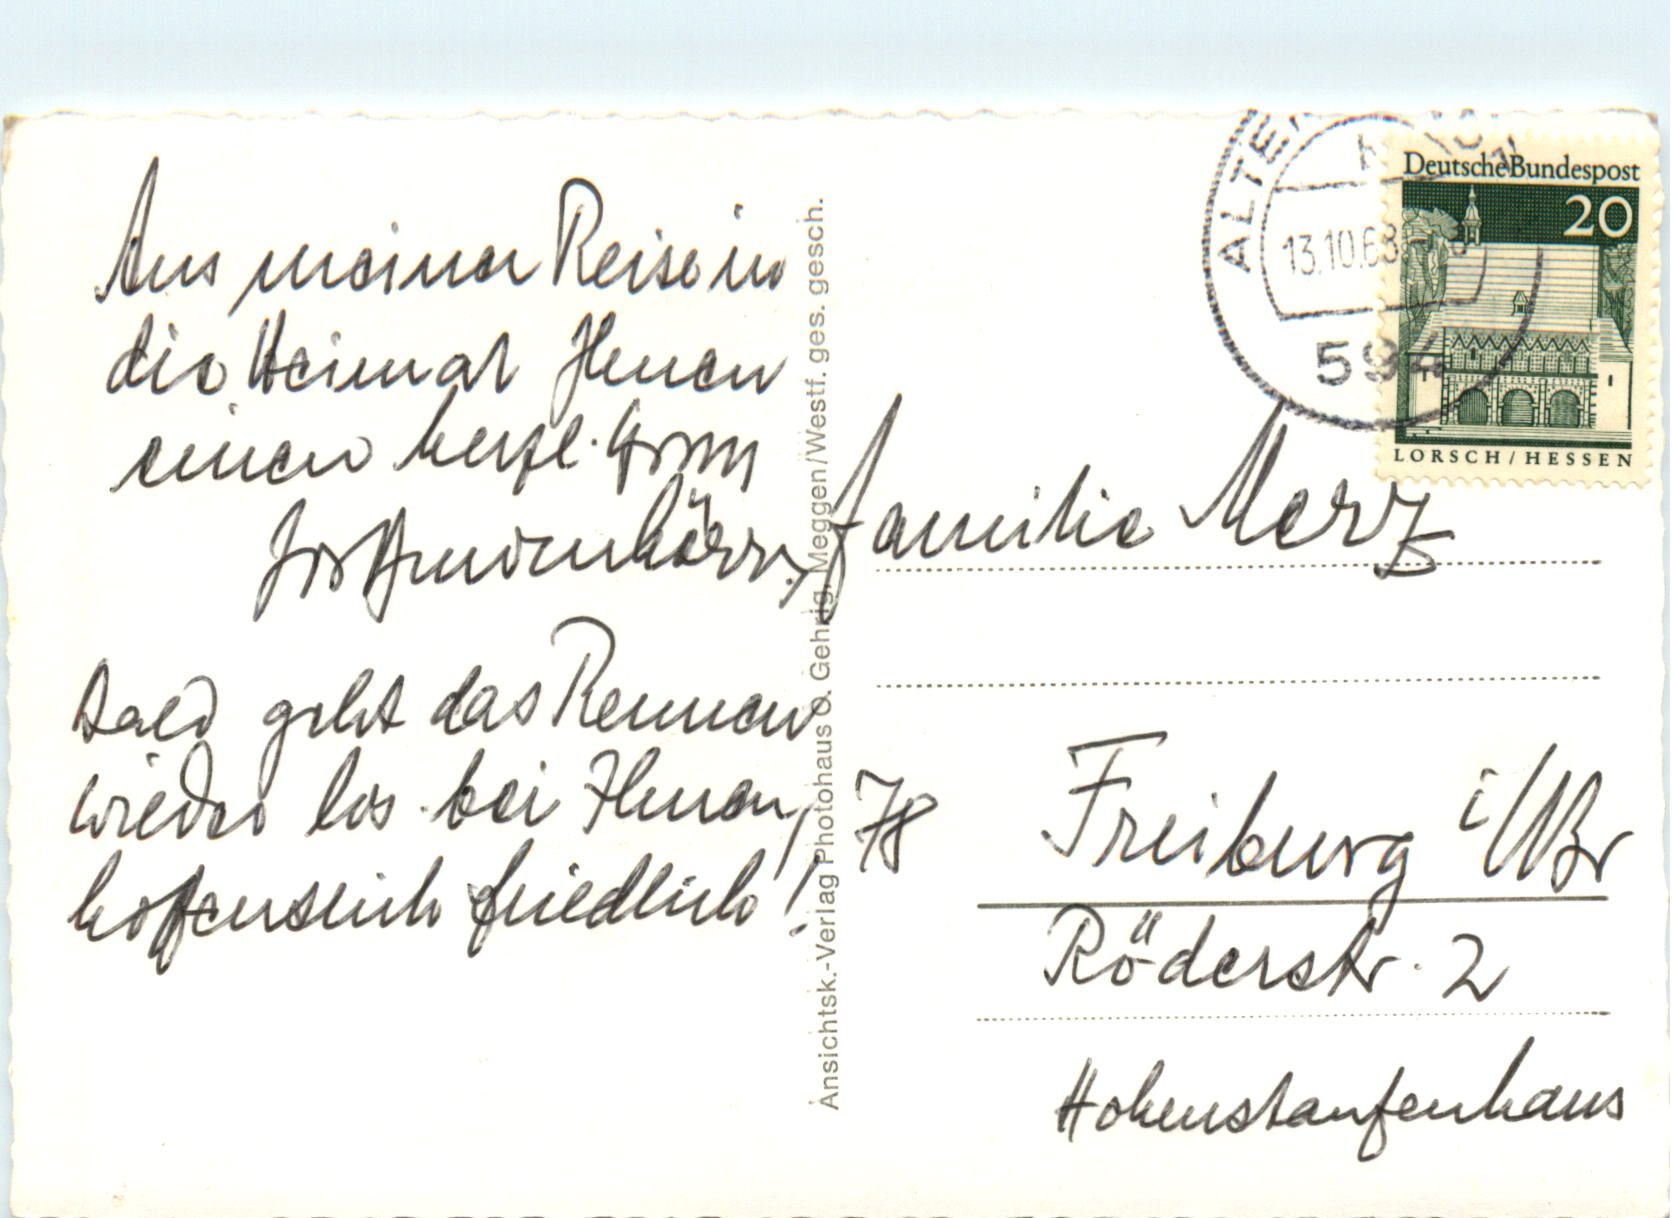 Aus meiner Reise in
die Heimat Ihnen
einen herzl. Gruss
Bald geht das Rennen
wieder los bei Ihnen,
hoffenslich friedlich!
Ansichtsk.-Verlag Photohaus O. Gehrig, Meggen/Westf. ges. gesch.
ALTE
13.10.68
594
Deutsche Bundespost
20
LORSCH/HESSEN
Familie Merz
78 Freiburg i/Br
Röderstr. 2
Hohenstaufenhaus